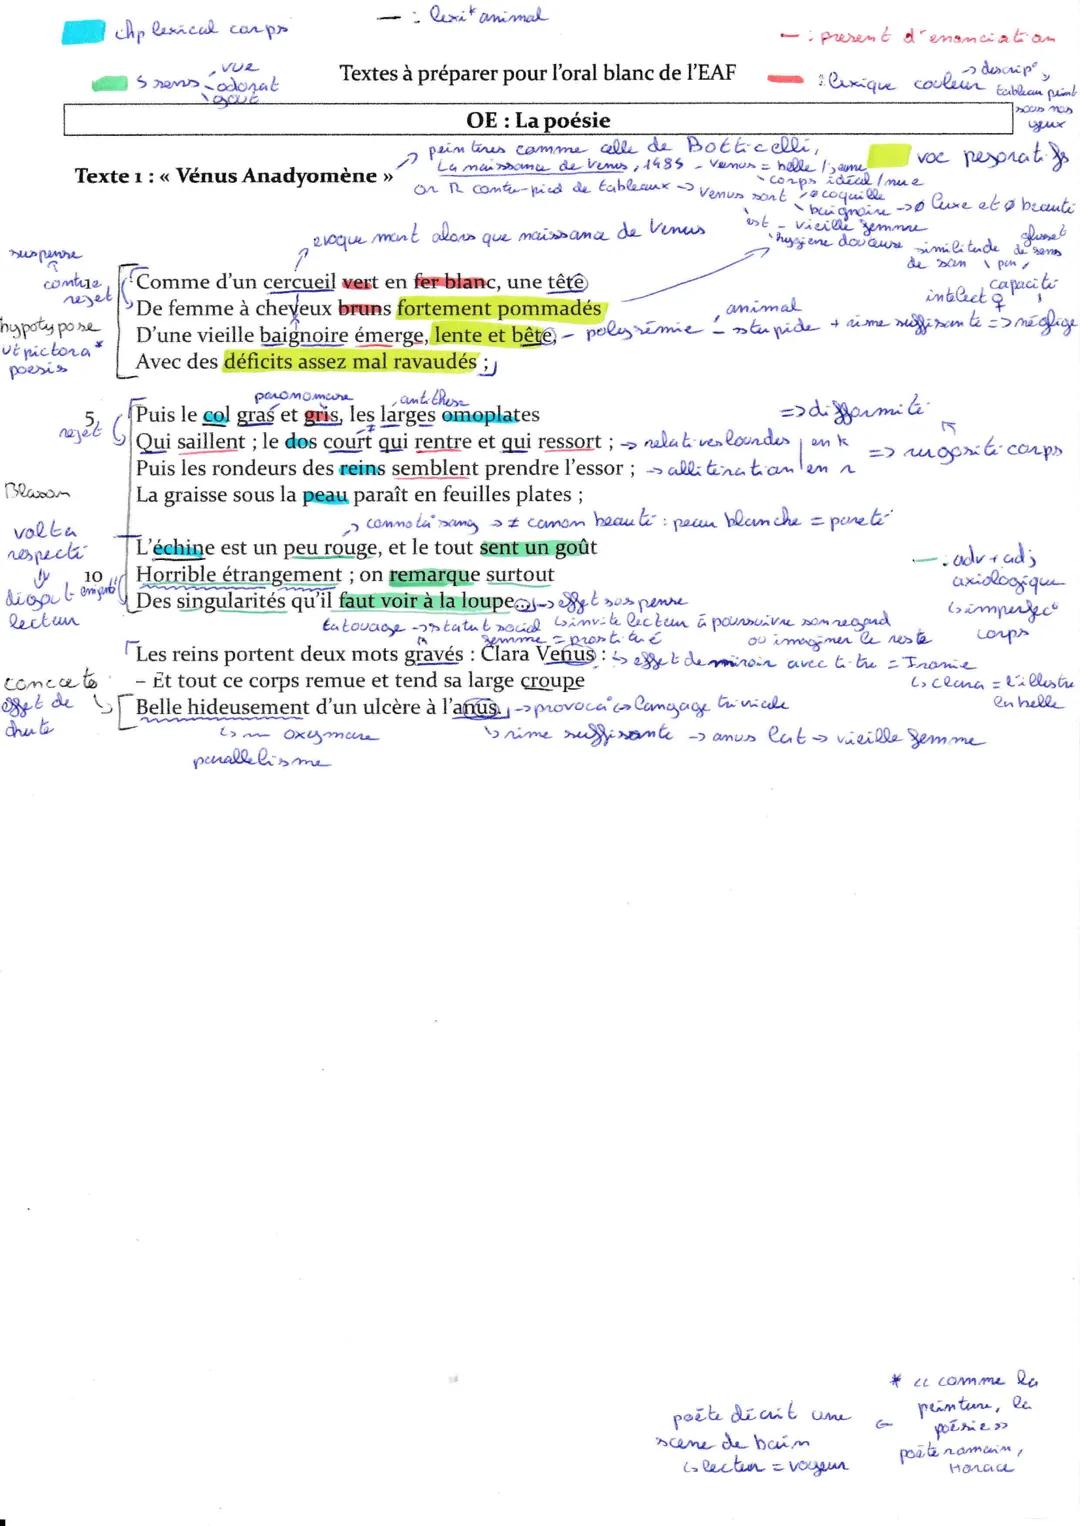 chp lexical corps
— : lexi* animal
— : present d'enonciation
5 sens
vue
odorat
gout
Textes à préparer pour l'oral blanc de l'EAF
: lexique couleur
→ descrip°,
tableau peint
sous nos
yeux
OE : La poésie
Texte 1 : « Vénus Anadyomène »
→ peintures comme celle de Botticelli,
La naissance de Venus, 1485 - Venus = belle / jeune
corps idéal / nue
or R contre-pied de tableaux → Venus sort
coquille
baignoire → Ø luxe et Ø beauté
est - vieille femme
hygiène douteuse
voc pejoratifs
similitude
de son
de sens
capacité
intelect
evoque mort alors que naissance de Venus
suspense
contre
rejet
hypotypose
ut pictora *
poesis
Comme d'un cercueil vert en fer blanc, une tête
De femme à cheveux bruns fortement pommadés
D'une vieille baignoire émerge, lente et bête,
Avec des déficits assez mal ravaudés ;
polysémie
animal
stupide + rime suffisante => néglige
paronomase
antithèse
5
rejet
Puis le col gras et gris, les larges omoplates
Qui saillent ; le dos court qui rentre et qui ressort ;
Puis les rondeurs des reins semblent prendre l'essor ;
La graisse sous la peau paraît en feuilles plates ;
=> difformité
→ relatives lourdes
en k
→ allitération en r
=> rugosité corps
Blason
→ connota° sang → ≠ canon beauté : peau blanche = pureté
volta
respecté
dégout
lecteur
10
L'échine est un peu rouge, et le tout sent un goût
Horrible étrangement ; on remarque surtout
Des singularités qu'il faut voir à la loupe...
→ effet suspense
— : adv + adj
axiologique
↳ imperfec°
corps
↳ invite lecteur à poursuivre son regard
ou imaginer le reste
tatouage → statut social
femme = prostitué
Les reins portent deux mots gravés : Clara Venus :
– Et tout ce corps remue et tend sa large croupe
Belle hideusement d'un ulcère à l'anus.
↳ effet de miroir avec titre = Ironie
↳ clara = l'illustre
concetto
effet de
chute
→ provoca° ↳ langage triviale
↳ oxymore
parallelisme
↳ rime suffisante → anus lat → vieille femme
* « comme la
peinture, la
poésie »
poète romain,
Horace
poète décrit une
scene de bain
↳ lecteur = voyeur